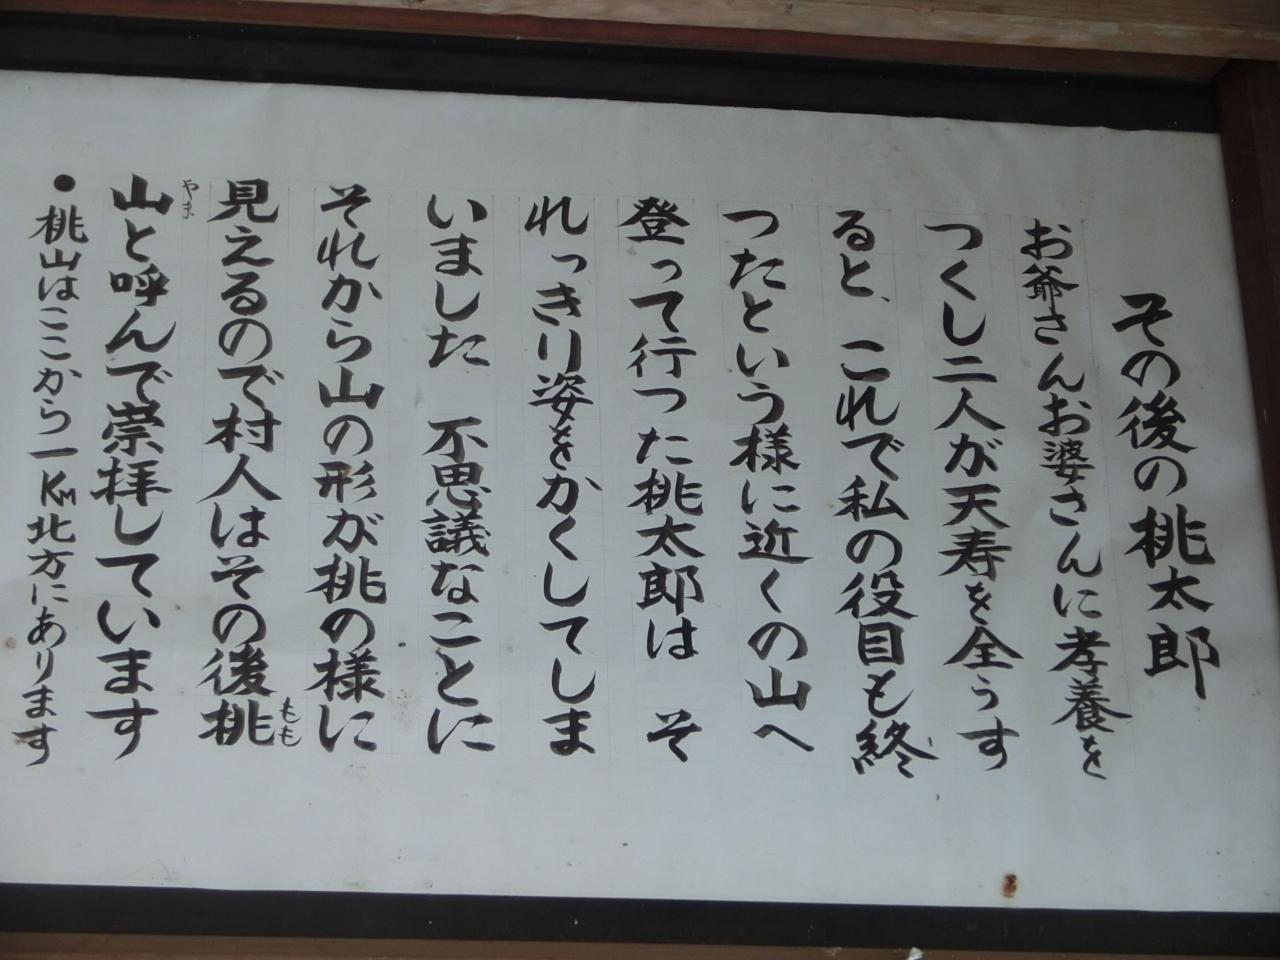 その後の桃太郎
お爺さんお婆さんに孝養を
つくし二人が天寿を全うす
ると、これで私の役目も終
つたという様に近くの山へ
登って行つた桃太郎は　そ
れっきり姿をかくしてしま
いました　不思議なことに
それから山の形が桃の様に
見えるので村人はその後桃
もも
山と呼んで崇拝しています
やま
●桃山はここから一Km北方にあります